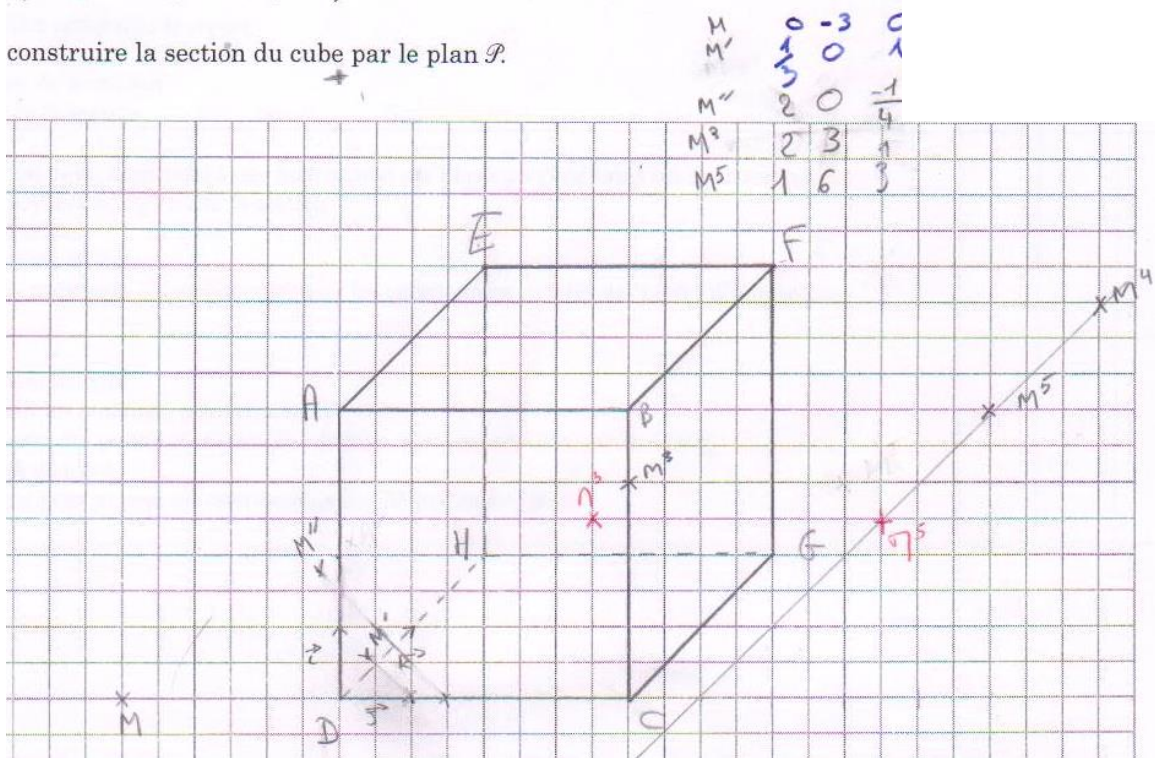 construire la section du cube par le plan 𝒫.
M 0 -3 0
M' 1/3 0 1
M'' 2 0 -1/4
M³ 2 3 1
M⁵ 1 6 3
E
F
M⁴
A
B
M⁵
M³
M''
H
G
M'
D
C
M